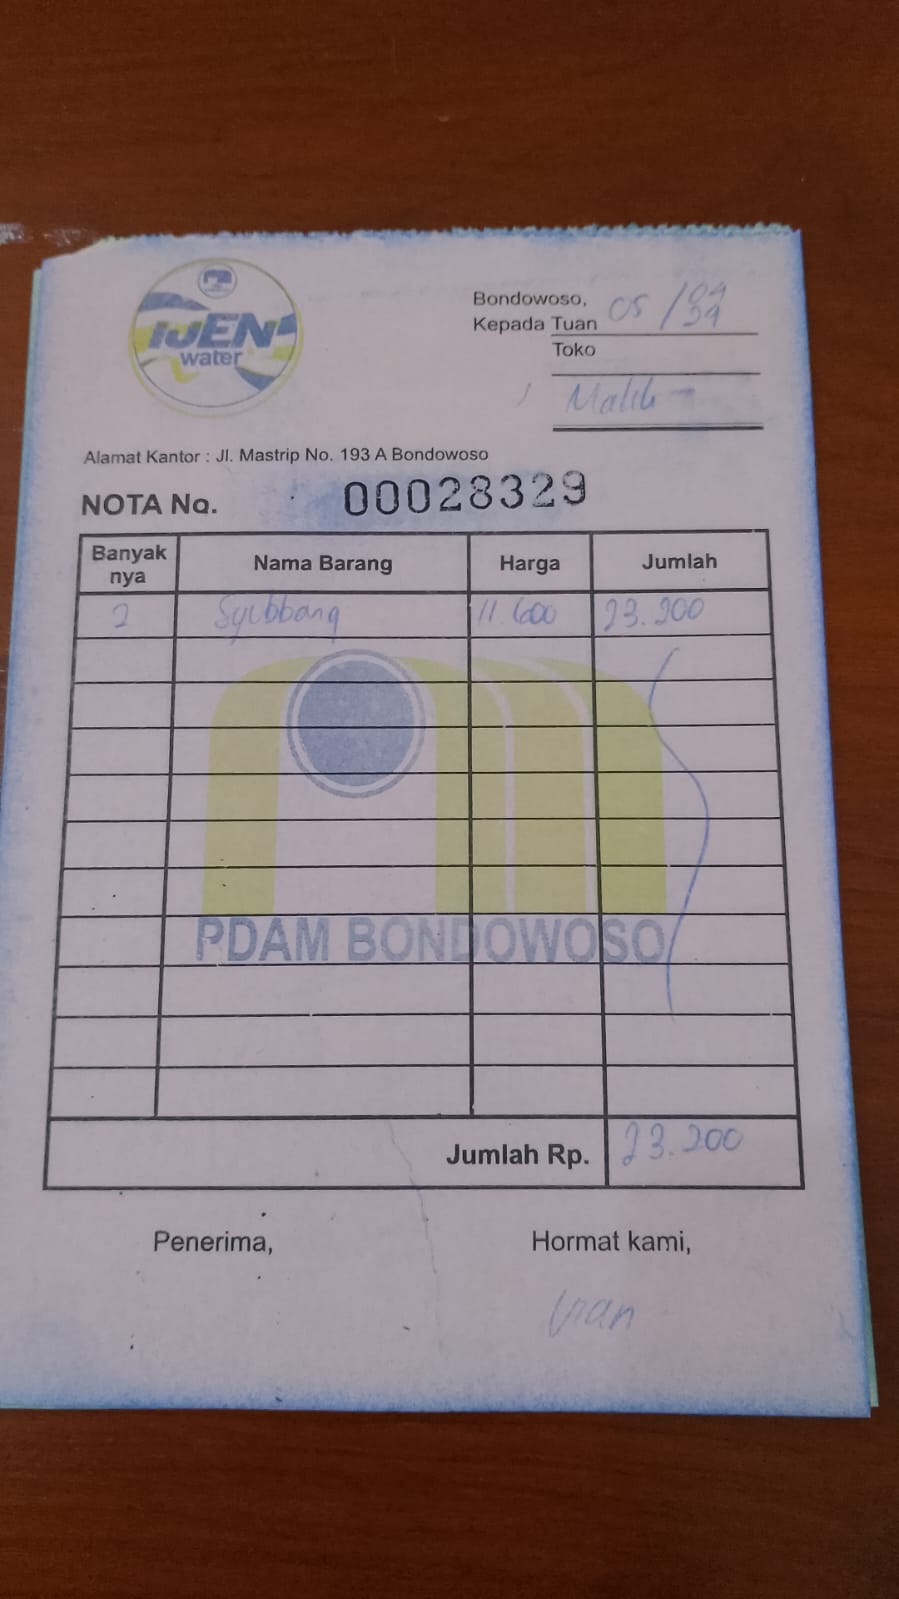 IJEN
water
Bondowoso, 05/09
Kepada Tuan 24
Toko
Malik
Alamat Kantor : Jl. Mastrip No. 193 A Bondowoso
NOTA No. 00028329
Banyak nya Nama Barang Harga Jumlah
2 Syubbang 11.600 23.200
PDAM BONDOWOSO
Jumlah Rp. 23.200
Penerima, Hormat kami,